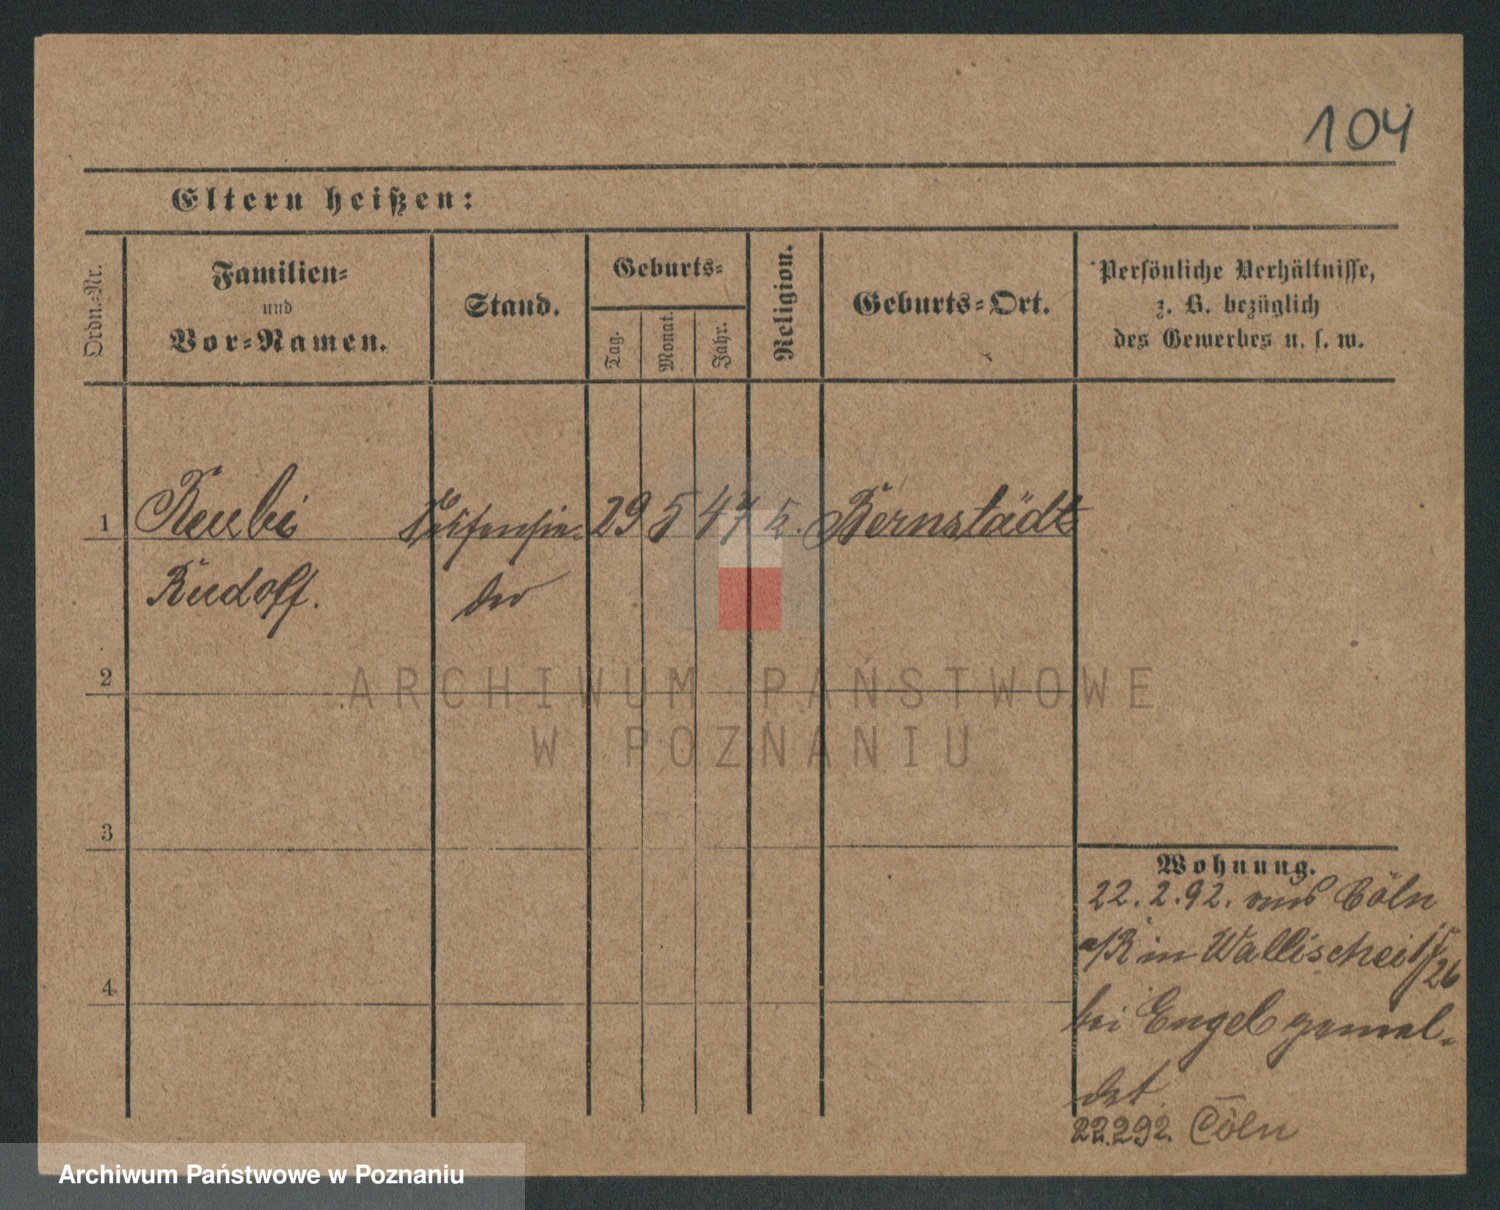 104
Eltern heißen:
Ordn.-Nr.
Familien-
und
Vor-Namen.
Stand.
Geburts-
Tag.
Monat.
Jahr.
Religion.
Geburts-Ort.
Persönliche Verhältnisse,
z. B. bezüglich
des Gewerbes u. s. w.
1 29 5 47 Bernstädt
Rudolf.
2
ARCHIWUM PAŃSTWOWE
W POZNANIU
3
4
Wohnung.
22. 2. 92. aus Cöln
a/R in Wallischei
26
bei Engel gemel-
det
22.2.92. Cöln
Archiwum Państwowe w Poznaniu